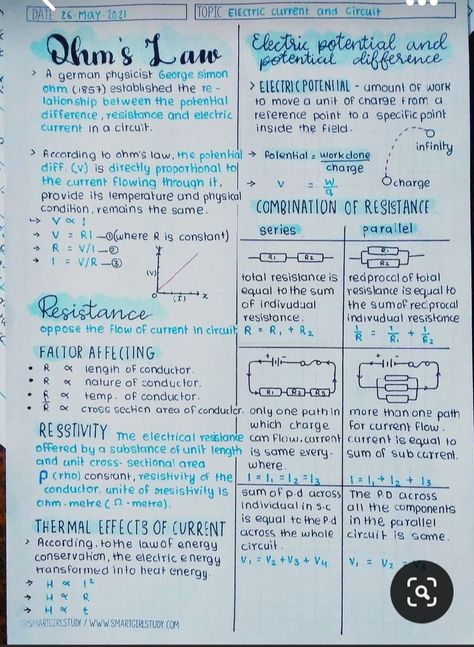 DATE 26-MAY-2021
TOPIC ELECTRIC current and circuit
Ohm's Law
> A german physicist George simon
ohm (1857) established the re-
lationship between the potential
difference, resistance and electric
current in a circuit.
> According to ohm's law, the potential
diff. (V) is directly proportional to
the current flowing through it,
provide its temperature and physical
condition, remains the same.
↳ V ∝ I
→ V = RI —① (where R is constant)
→ R = V/I —②
→ I = V/R —③
(V)
Y
(I)
x
Resistance
oppose the flow of current in circuit
FACTOR AFFECTING
• R ∝ length of conductor.
• R ∝ nature of conductor.
• R ∝ temp. of conductor.
• R ∝ cross section area of conductor.
RESSTIVITY The electrical resistance
offered by a substance of unit length
and unit cross-sectional area
ρ (rho) constant, resistivity of the
conductor. unite of resistivity is
ohm-metre (Ω-metre).
THERMAL EFFECTS OF CURRENT
> According, to the law of energy
conservation, the electric energy
transformed into heat energy.
→ H ∝ I²
→ H ∝ R
→ H ∝ t
@SMARTGIRLSTUDY / WWW.SMARTGIRLSTUDY.COM
Electric potential and
potential difference
> ELECTRIC POTENTIAL - amount of work
to move a unit of charge from a
reference point to a specific point
inside the field.
infinity
charge
→ Potential = workdone
charge
→ V = W
q
COMBINATION OF RESISTANCE
series
R1 R2
total resistance is
equal to the sum
of indivudual
resistance.
R = R1 + R2
R1 R2 R3
only one path in
which charge
can flow. current
is same every-
where.
I = I1 = I2 = I3
sum of p.d across
individual in s.c
is equal to the P.d
across the whole
circuit.
V1 = V2 + V3 + V4
parallel
R1
R2
reciprocal of total
resistance is equal to
the sum of reciprocal
individual resistance
1/R = 1/R1 + 1/R2
more than one path
for current flow.
current is equal to
sum of sub current.
I = I1 + I2 + I3
The PD across
all the components
in the parallel
circuit is same.
V1 = V2 = V3